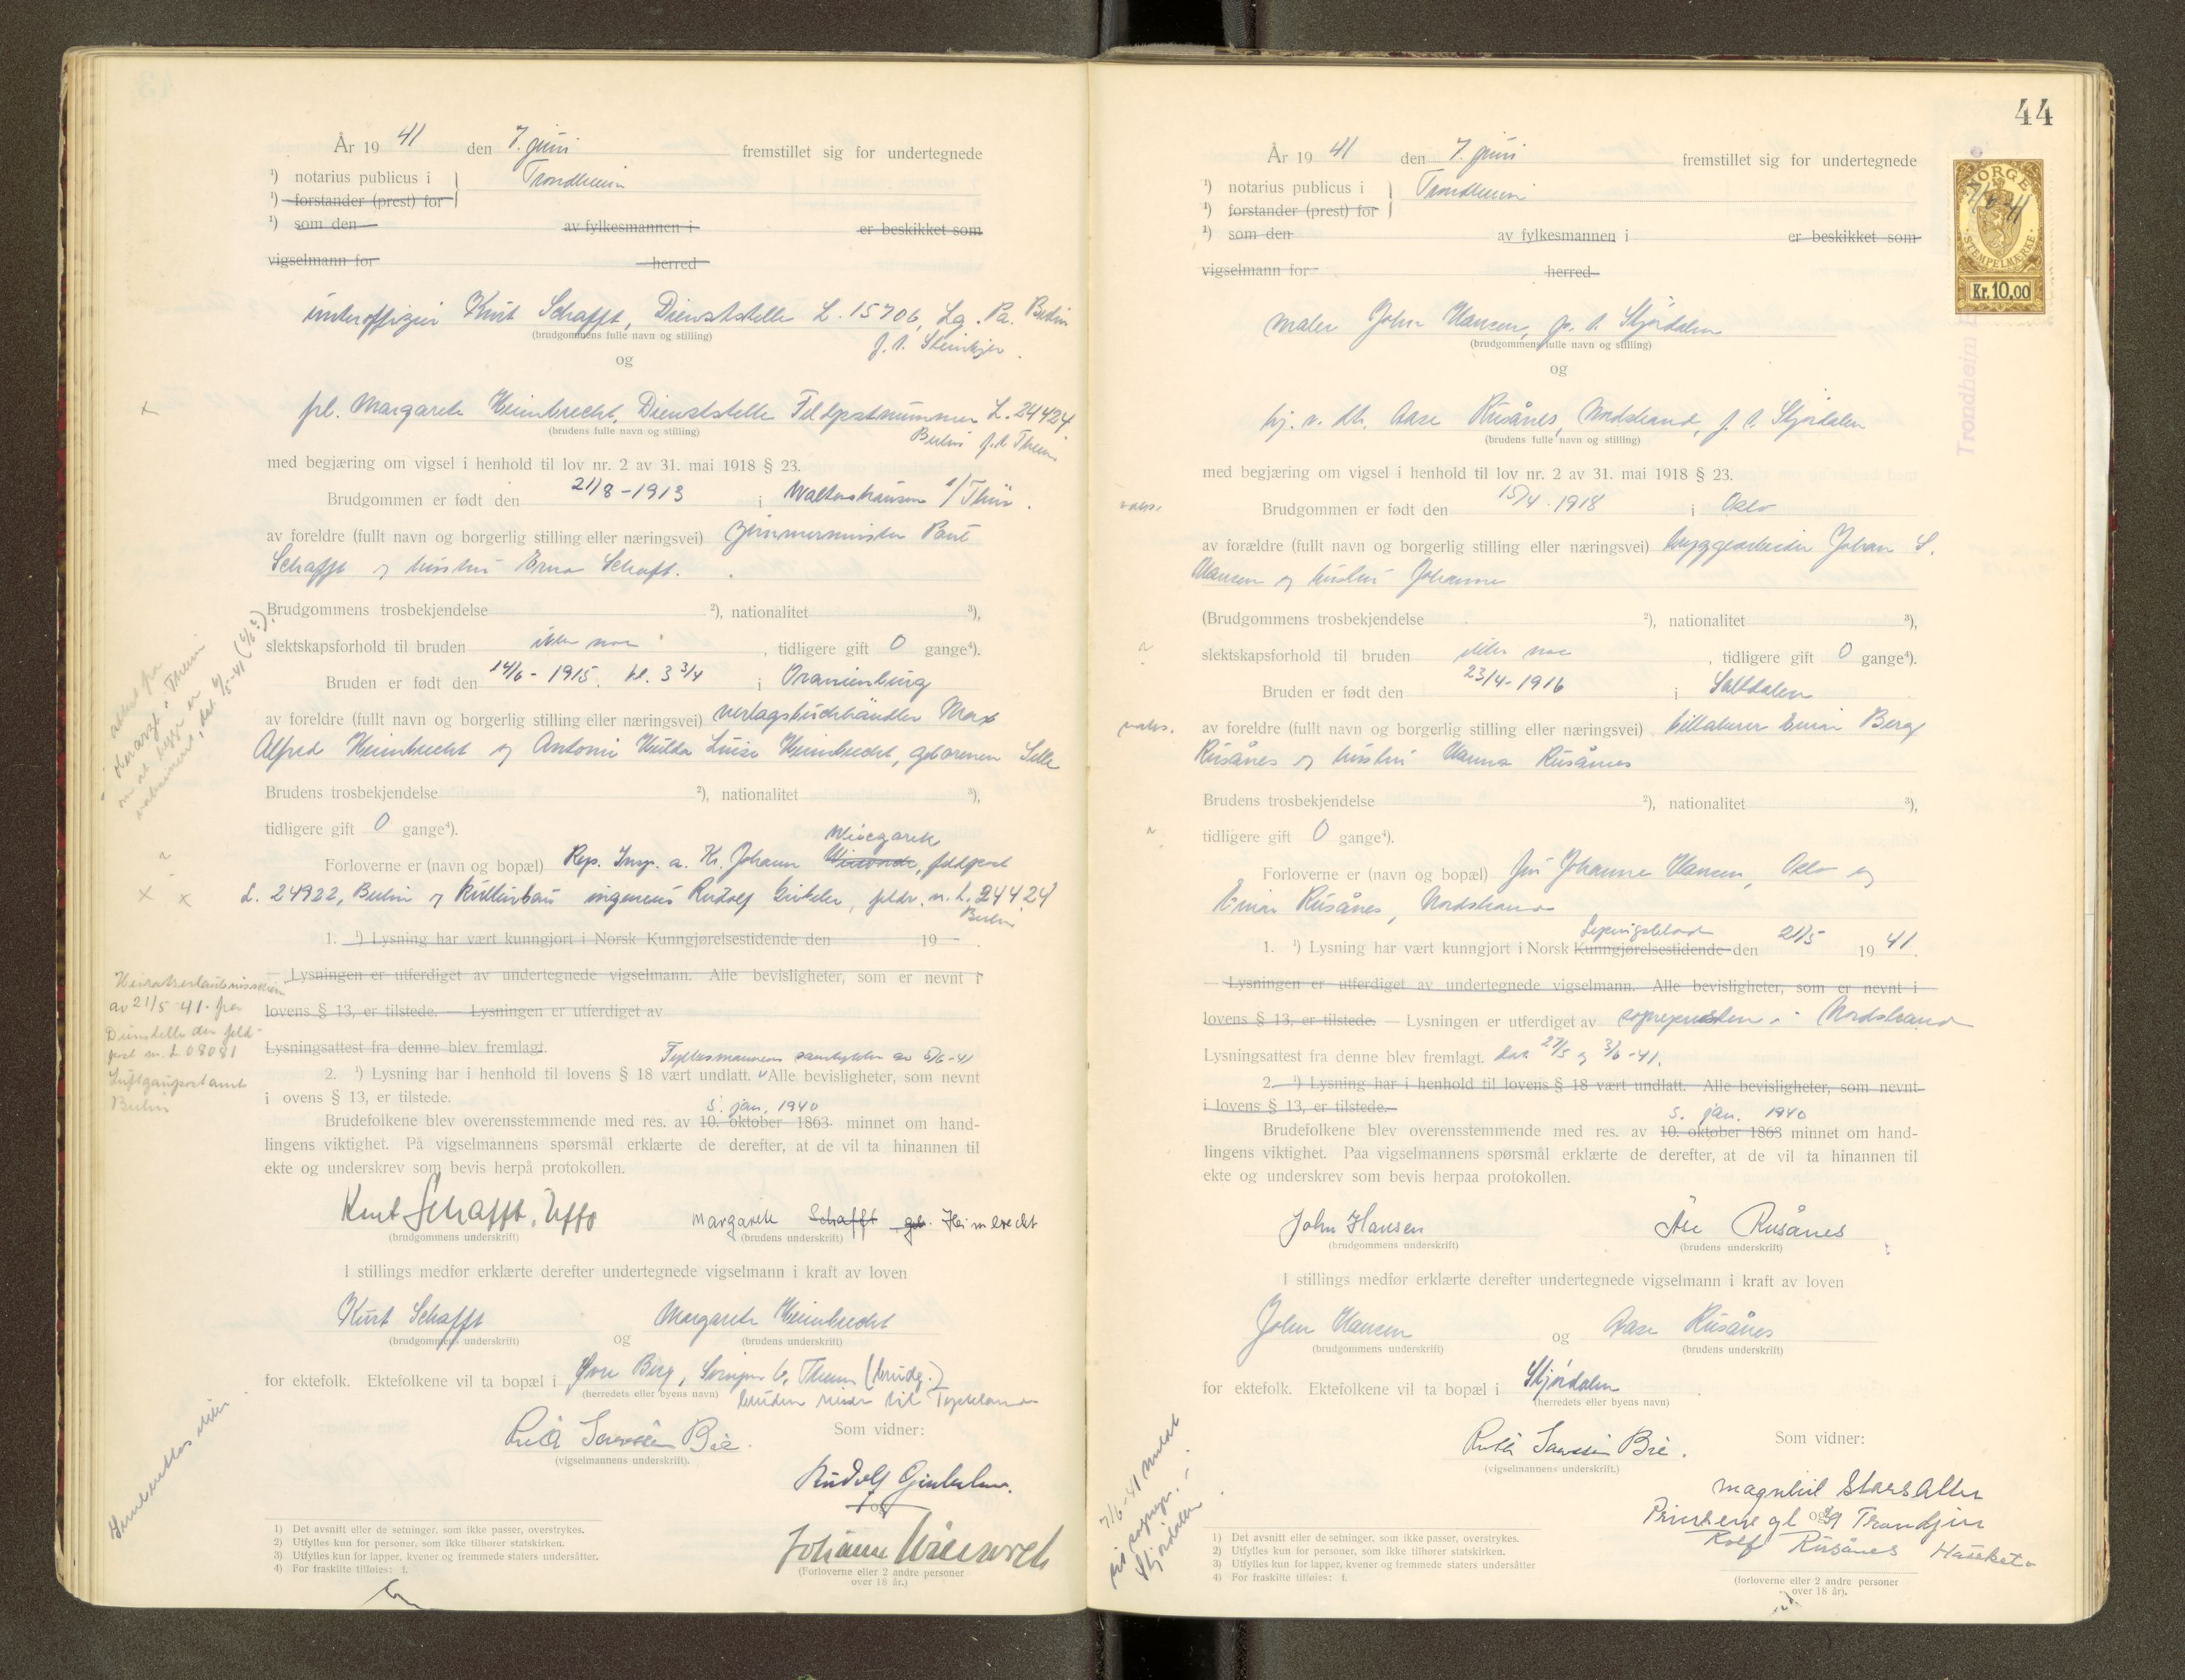 År 19 41 den 7. juni fremstillet sig for undertegnede
¹) notarius publicus i Trondheim
¹) forstander (prest) for
¹) som den av fylkesmannen i er beskikket som
vigselmann for herred
Unteroffizier Kurt Schafft, Dienststelle L. 15706, Lg. Pa. Berlin
(brudgommens fulle navn og stilling)
f. t. Steinkjer.
og
frl. Margarete Heimbrecht, Dienststelle Feldpostnummer L. 24424
(brudens fulle navn og stilling)
Berlin f. t. Theim
med begjæring om vigsel i henhold til lov nr. 2 av 31. mai 1918 § 23.
Brudgommen er født den 21/8-1913 i Waltershausen i/Thür.
av foreldre (fullt navn og borgerlig stilling eller næringsvei) Zimmermeister
Schafft og hustru Erna Schaft.
Brudgommens trosbekjendelse ²), nationalitet ³),
slektskapsforhold til bruden ikke noe, tidligere gift 0 gange⁴).
Bruden er født den 14/6-1915. kl. 3 3/4 i Oranienburg
av foreldre (fullt navn og borgerlig stilling eller næringsvei) Verlagsbuchhändler Max
Alfred Heimbrecht og Antonie Hulda Luise Heimbrecht, geborenen
Brudens trosbekjendelse ²), nationalitet ³),
tidligere gift 0 gange⁴).
Forloverne er (navn og bopæl) Rep. Insp. a. Kr. Johann feldpost
L. 24922, Berlin og ingeneur Rudolf feldp. n. L. 24424
Berlin
1. ¹) Lysning har vært kunngjort i Norsk Kunngjørelsestidende den 19
Lysningen er utferdiget av undertegnede vigselmann. Alle bevisligheter, som er nevnt i
lovens § 13, er tilstede. — Lysningen er utferdiget av
Lysningsattest fra denne blev fremlagt.
Fylkesmannens samtykke av 6/6-41
2. ¹) Lysning har i henhold til lovens § 18 vært undlatt. Alle bevisligheter, som nevnt
i ovens § 13, er tilstede.
5. jan. 1940
Brudefolkene blev overensstemmende med res. av 10. oktober 1863 minnet om hand-
lingens viktighet. På vigselmannens spørsmål erklærte de derefter, at de vil ta hinannen til
ekte og underskrev som bevis herpå protokollen.
Kurt Schafft, Uffz Margarete Schafft geb. Heimbrecht
(brudgommens underskrift) (brudens underskrift)
I stillings medfør erklærte derefter undertegnede vigselmann i kraft av loven
Kurt Schafft og Margarete Heimbrecht
(brudgommens underskrift) (brudens underskrift)
for ektefolk. Ektefolkene vil ta bopæl i Øvre Berg, Theim (brudg.)
(herredets eller byens navn) bruden reiser til Tyskland
Som vidner:
(vigselmannens underskrift).
Rudolf
og
Johann
(Forloverne eller 2 andre personer
over 18 år.)
1) Det avsnitt eller de setninger, som ikke passer, overstrykes.
2) Utfylles kun for personer, som ikke tilhører statskirken.
3) Utfylles kun for lapper, kvener og fremmede staters undersåtter.
4) For fraskilte tilføies: f.
av 21/5-41 fra
Dienststelle der feld-
post nr. L 08081
Luftgaupostamt
Berlin
44
NORGE
STEMPELMERKE
Kr. 10,00
Trondheim
År 19 41 den 7. juni fremstillet sig for undertegnede
¹) notarius publicus i Trondheim
¹) forstander (prest) for
¹) som den av fylkesmannen i er beskikket som
vigselmann for herred
maler John Hansen, p. t. Stjørdalen
(brudgommens fulle navn og stilling)
og
hj. v. dtr. Aase Rusånes, Nordstrand, p. t. Stjørdalen
(brudens fulle navn og stilling)
med begjæring om vigsel i henhold til lov nr. 2 av 31. mai 1918 § 23.
vaks. Brudgommen er født den 15/4-1918 i Oslo
av forældre (fullt navn og borgerlig stilling eller næringsvei) byggearbeider Johan S.
Hansen og hustru Johanne
(Brudgommens trosbekjendelse ²), nationalitet ³),
slektskapsforhold til bruden ikke noe, tidligere gift 0 gange⁴).
Bruden er født den 23/4-1916 i Saltdalen
vaks. av foreldre (fullt navn og borgerlig stilling eller næringsvei) billakerer Einar Berg
Rusånes og hustru Hanna Rusånes
Brudens trosbekjendelse ²), nationalitet ³),
tidligere gift 0 gange⁴).
Forloverne er (navn og bopæl) fru Johanne Hansen, Oslo og
Einar Rusånes, Nordstrand
Lysingsblad
1. ¹) Lysning har vært kunngjort i Norsk Kunngjørelsestidende den 21/5 19 41.
Lysningen er utferdiget av undertegnede vigselmann. Alle bevisligheter, som er nevnt i
lovens § 13, er tilstede. — Lysningen er utferdiget av sognepresten i Nordstrand
Lysningsattest fra denne blev fremlagt. dat. 27/5 og 3/6-41.
2. ¹) Lysning har i henhold til lovens § 18 vært undlatt. Alle bevisligheter, som nevnt
i lovens § 13, er tilstede.
5. jan. 1940
Brudefolkene blev overensstemmende med res. av 10. oktober 1863 minnet om hand-
lingens viktighet. Paa vigselmannens spørsmål erklærte de derefter, at de vil ta hinannen til
ekte og underskrev som bevis herpaa protokollen.
John Hansen Åse Rusånes
(brudgommens underskrift) (brudens underskrift)
I stillings medfør erklærte derefter undertegnede vigselmann i kraft av loven
John Hansen og Aase Rusånes
(brudgommens underskrift) (brudens underskrift)
for ektefolk. Ektefolkene vil ta bopæl i Stjørdalen
(herredets eller byens navn)
Som vidner:
(vigselmannens underskrift.)
Prinsens gt og 39
Rolf Rusånes Hauketo
(forloverne eller 2 andre personer
over 18 år).
7/6-41 meldt
til sognepr. i
Stjørdalen
1) Det avsnitt eller de setninger, som ikke passer, overstrykes.
2) Utfylles kun for personer, som ikke tilhører statskirken.
3) Utfylles kun for lapper, kvener og fremmede staters undersåtter
4) For fraskilte tilføies: f.